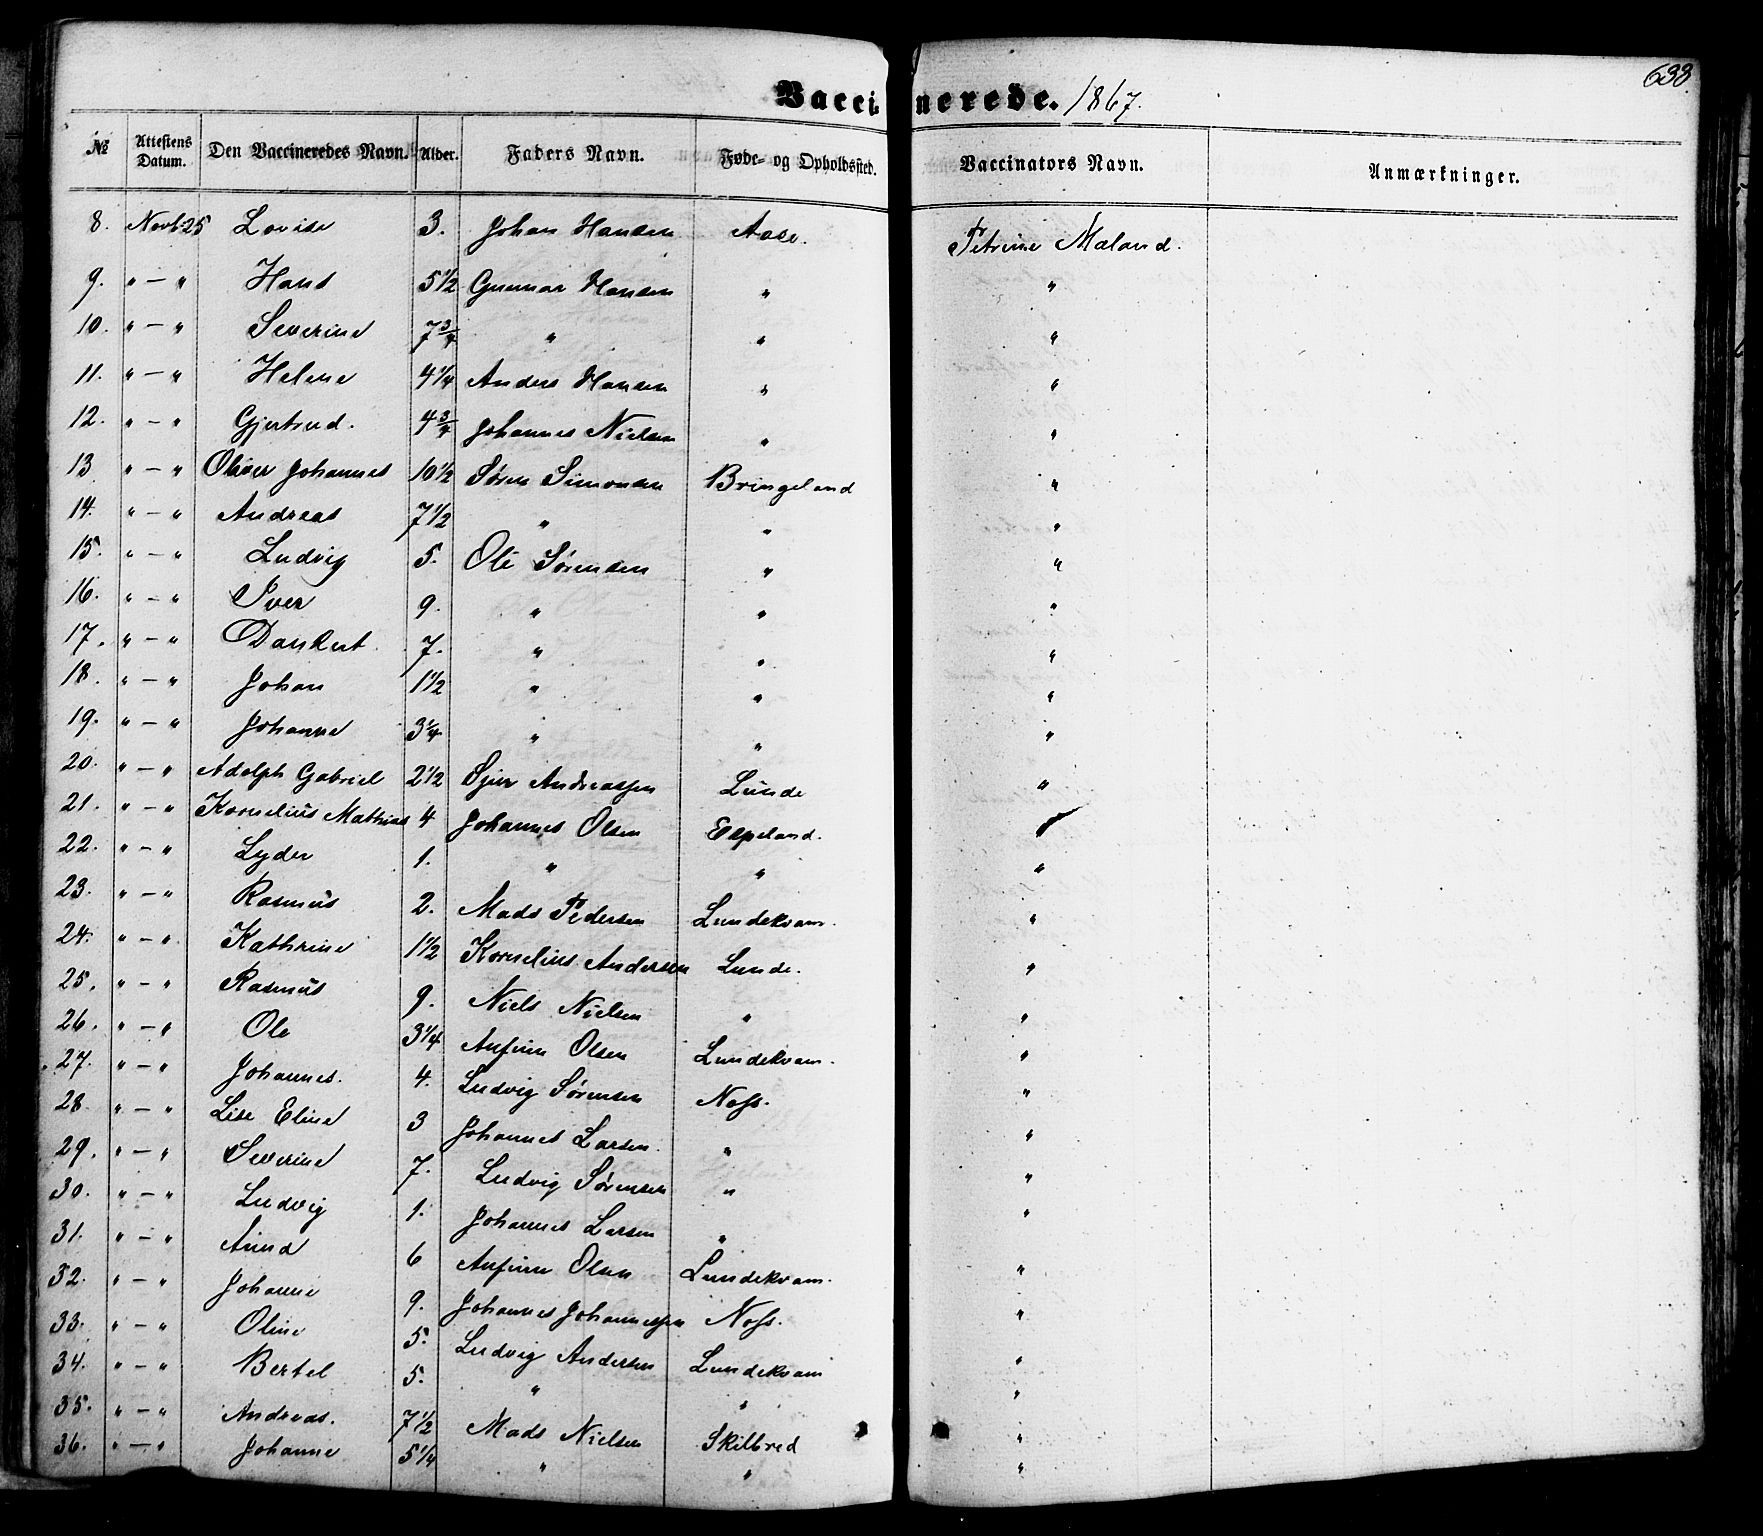 638.
Vaccinerede. 1867.
№ Attestens Datum. Den Vaccineredes Navn. Alder. Faders Navn. Føde- og Opholdssted. Vaccinators Navn. Anmærkninger.
8. Novb. 25 Lovise 3. Johan Hansen Aase. Petrine Mæland.
9. " — " Hans 5 1/2 Gunnar Hansen " "
10. " — " Severine 7 3/4 " " "
11. " — " Helene 4 1/4 Anders Hansen " "
12. " — " Gjertrud. 4 3/4 Johannes Nielsen " "
13 " — " Oliver Johannes 10 1/2 Søren Simonsen Bringeland "
14. " — " Andreas 7 1/2 " " "
15. " — " Ludvig 5. Ole Sørensen " "
16. " — " Iver 9. " " "
17. " — " Dankert 7. " " "
18. " — " Johan 1 1/2 " " "
19. " — " Johanne 3 1/4 " " "
20. " — " Adolph Gabriel 2 1/2 Sjur Andreassen Lunde "
21. " — " Kornelius Mathias 4 Johannes Olsen Espeland. "
22. " — " Lyder 1. " " "
23. " — " Rasmus 2. Mads Pedersen Lundekvam. "
24. " — " Kathrine 1 1/2 Kornelius Andersen Lunde. "
25. " — " Rasmus 9. Niels Nielsen " "
26. " — " Ole 3 1/4 Anfinn Olsen Lundekvam. "
27. " — " Johannes. 4. Ludvig Sørensen Noss. "
28. " — " Lise Eline 3 Johannes Larsen. " "
29. " — " Severine 7. Ludvig Sørensen " "
30. " — " Ludvig 1. Johannes Larsen " "
31. " — " 6 Anfinn Olsen Lundekvam. "
32. " — " Johanne 9. Johannes Johannessen Noss. "
33. " — " Oline 5. Ludvig Andersen Lundekvam "
34. " — " Bertel 5. " " "
35. " — " Andreas. 7 1/2 Mads Nielsen Skilbred "
36. " — " Johanne 5 1/4 " " "